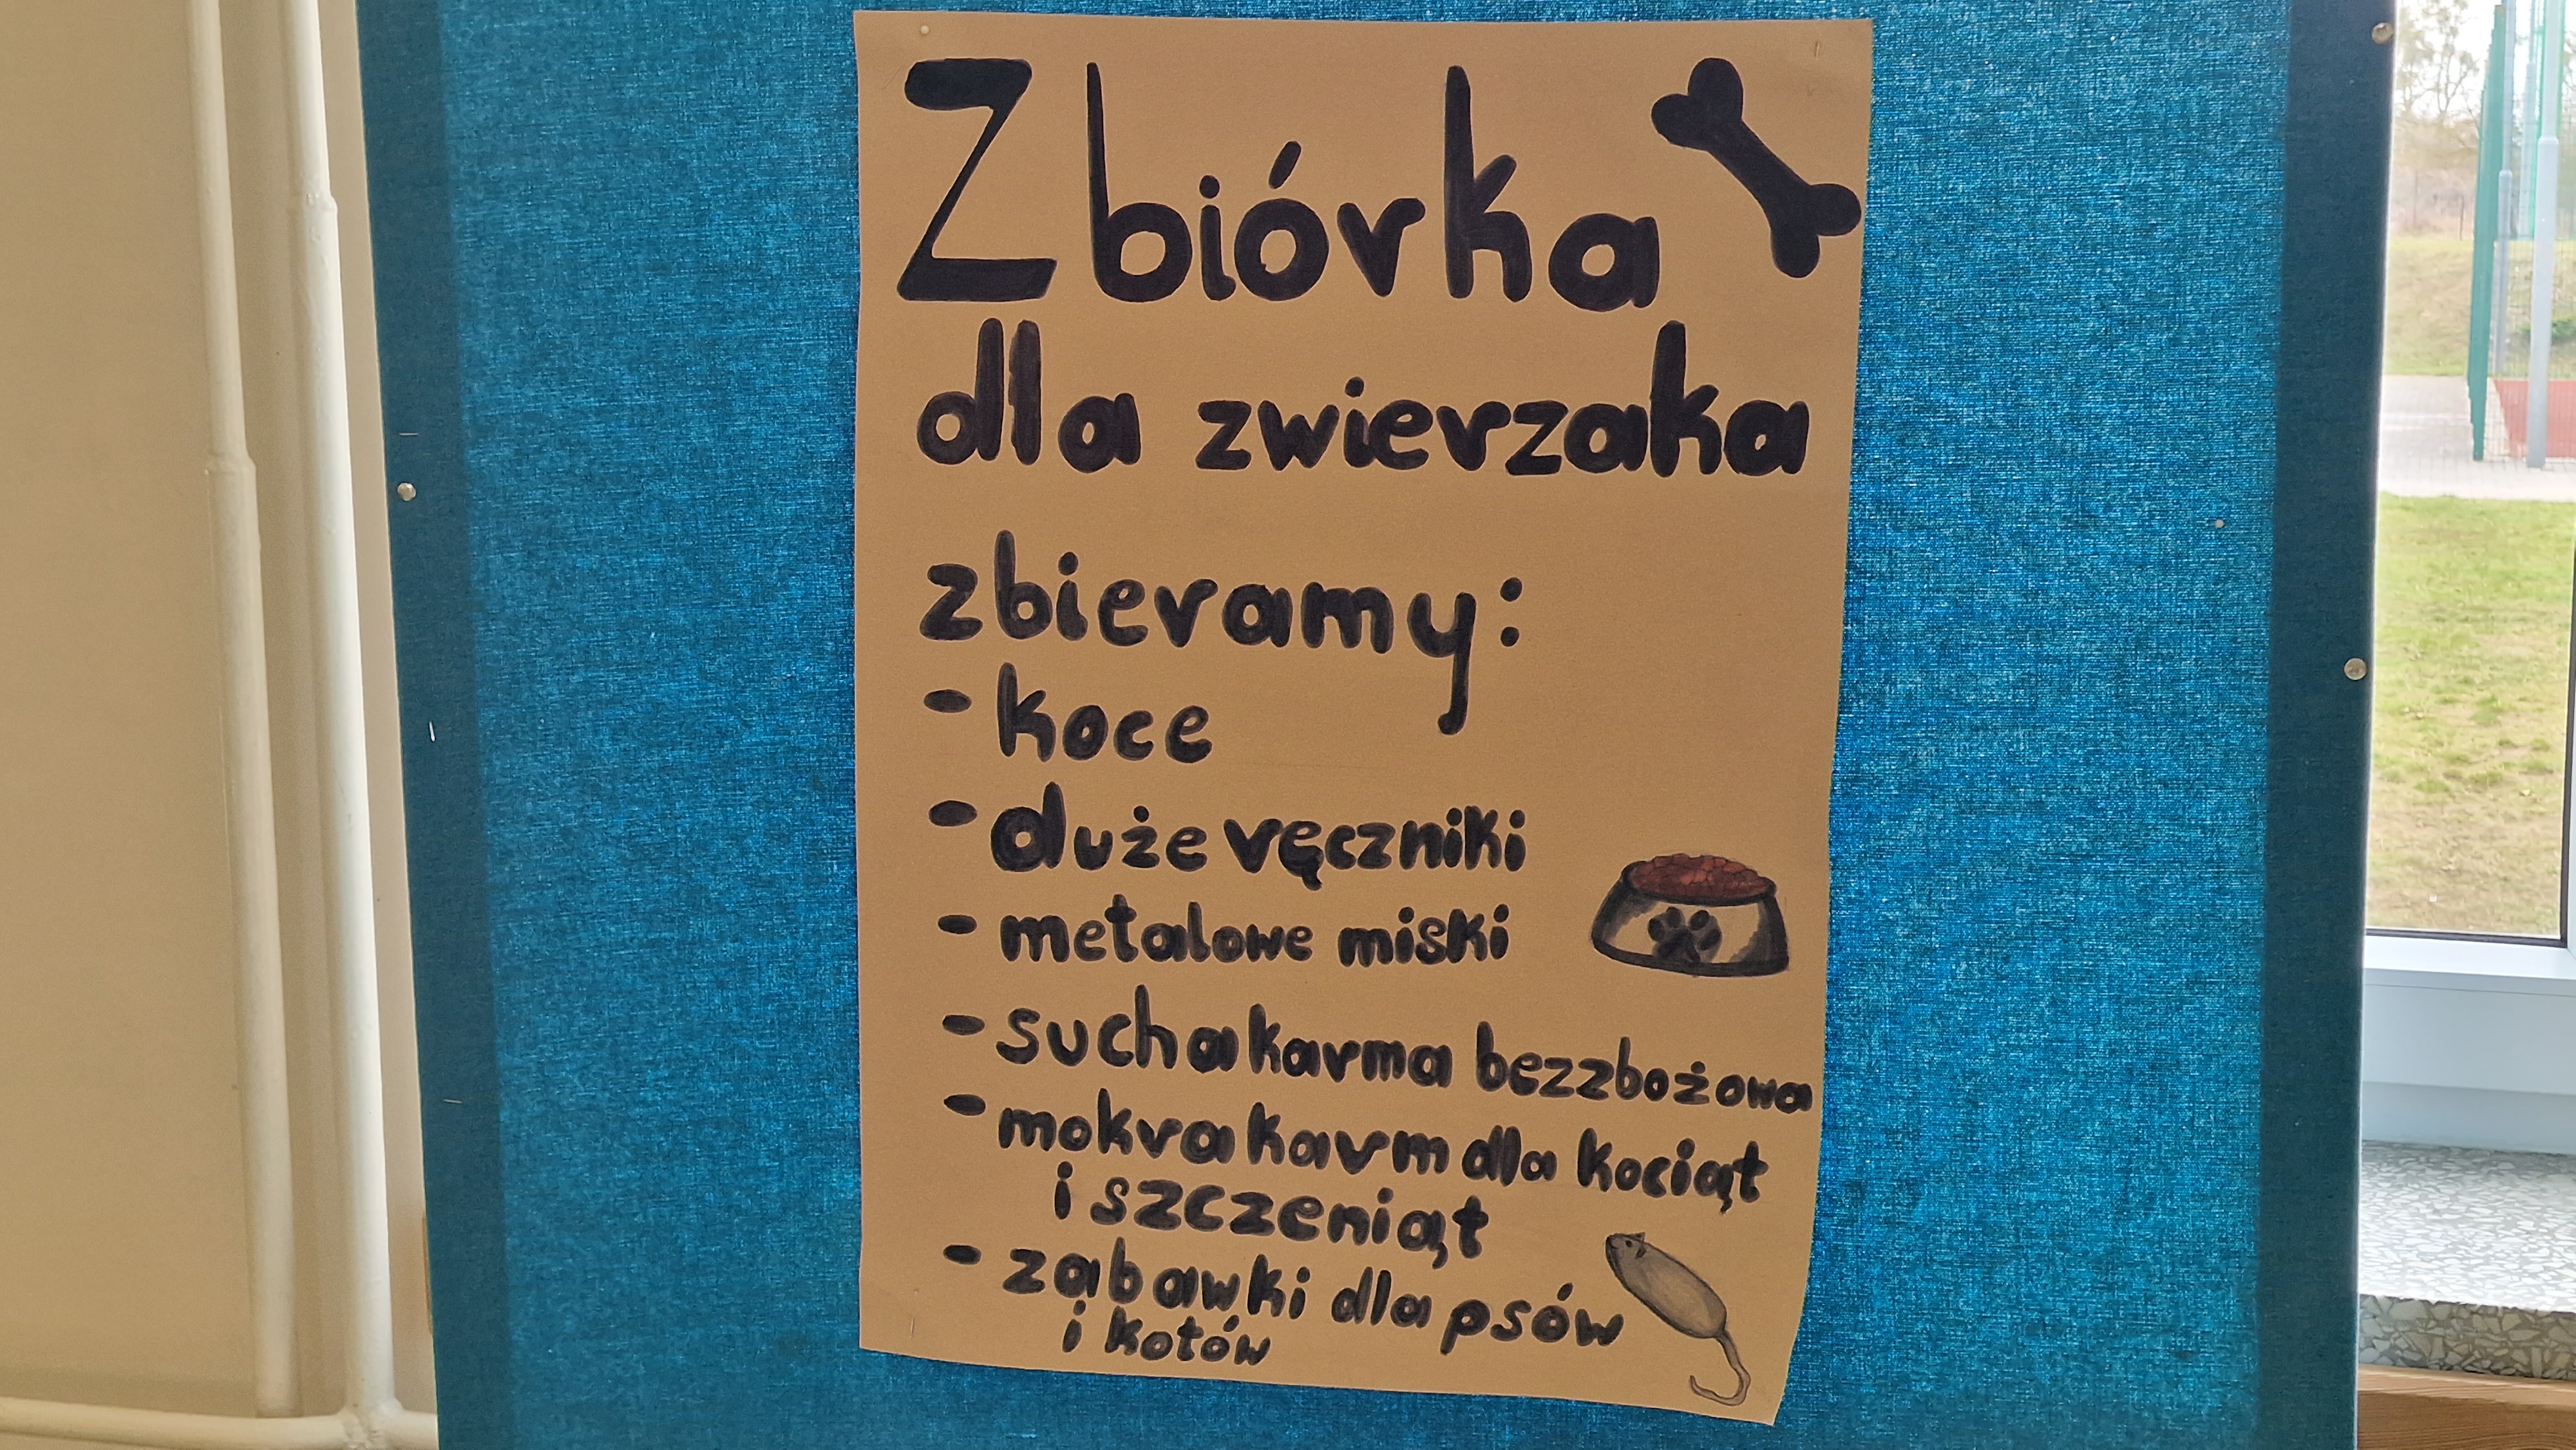 Zbiórka
dla zwierzaka
zbieramy:
- koce
- duże ręczniki
- metalowe miski
- sucha karma bezzbożowa
- mokra karm dla kociąt
i szczeniąt
- zabawki dla psów
i kotów